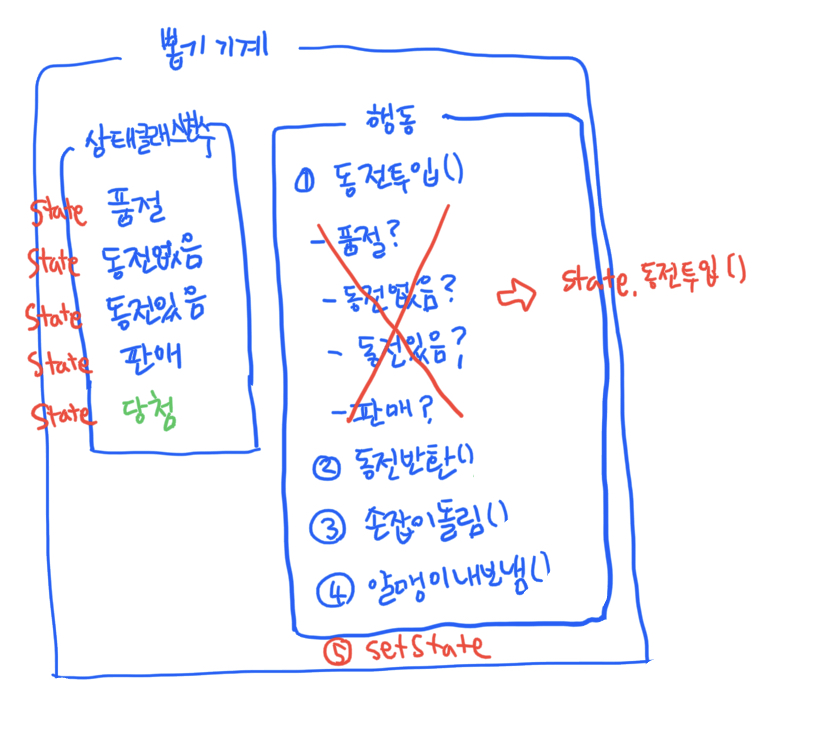 뽑기 기계
상태클래스변수
State 품절
State 동전없음
State 동전있음
State 판매
State 당첨
행동
① 동전투입()
- 품절?
- 동전없음?
- 동전있음?
- 판매?
⇨ state.동전투입()
② 동전반환()
③ 손잡이돌림()
④ 알맹이내보냄()
⑤ setState